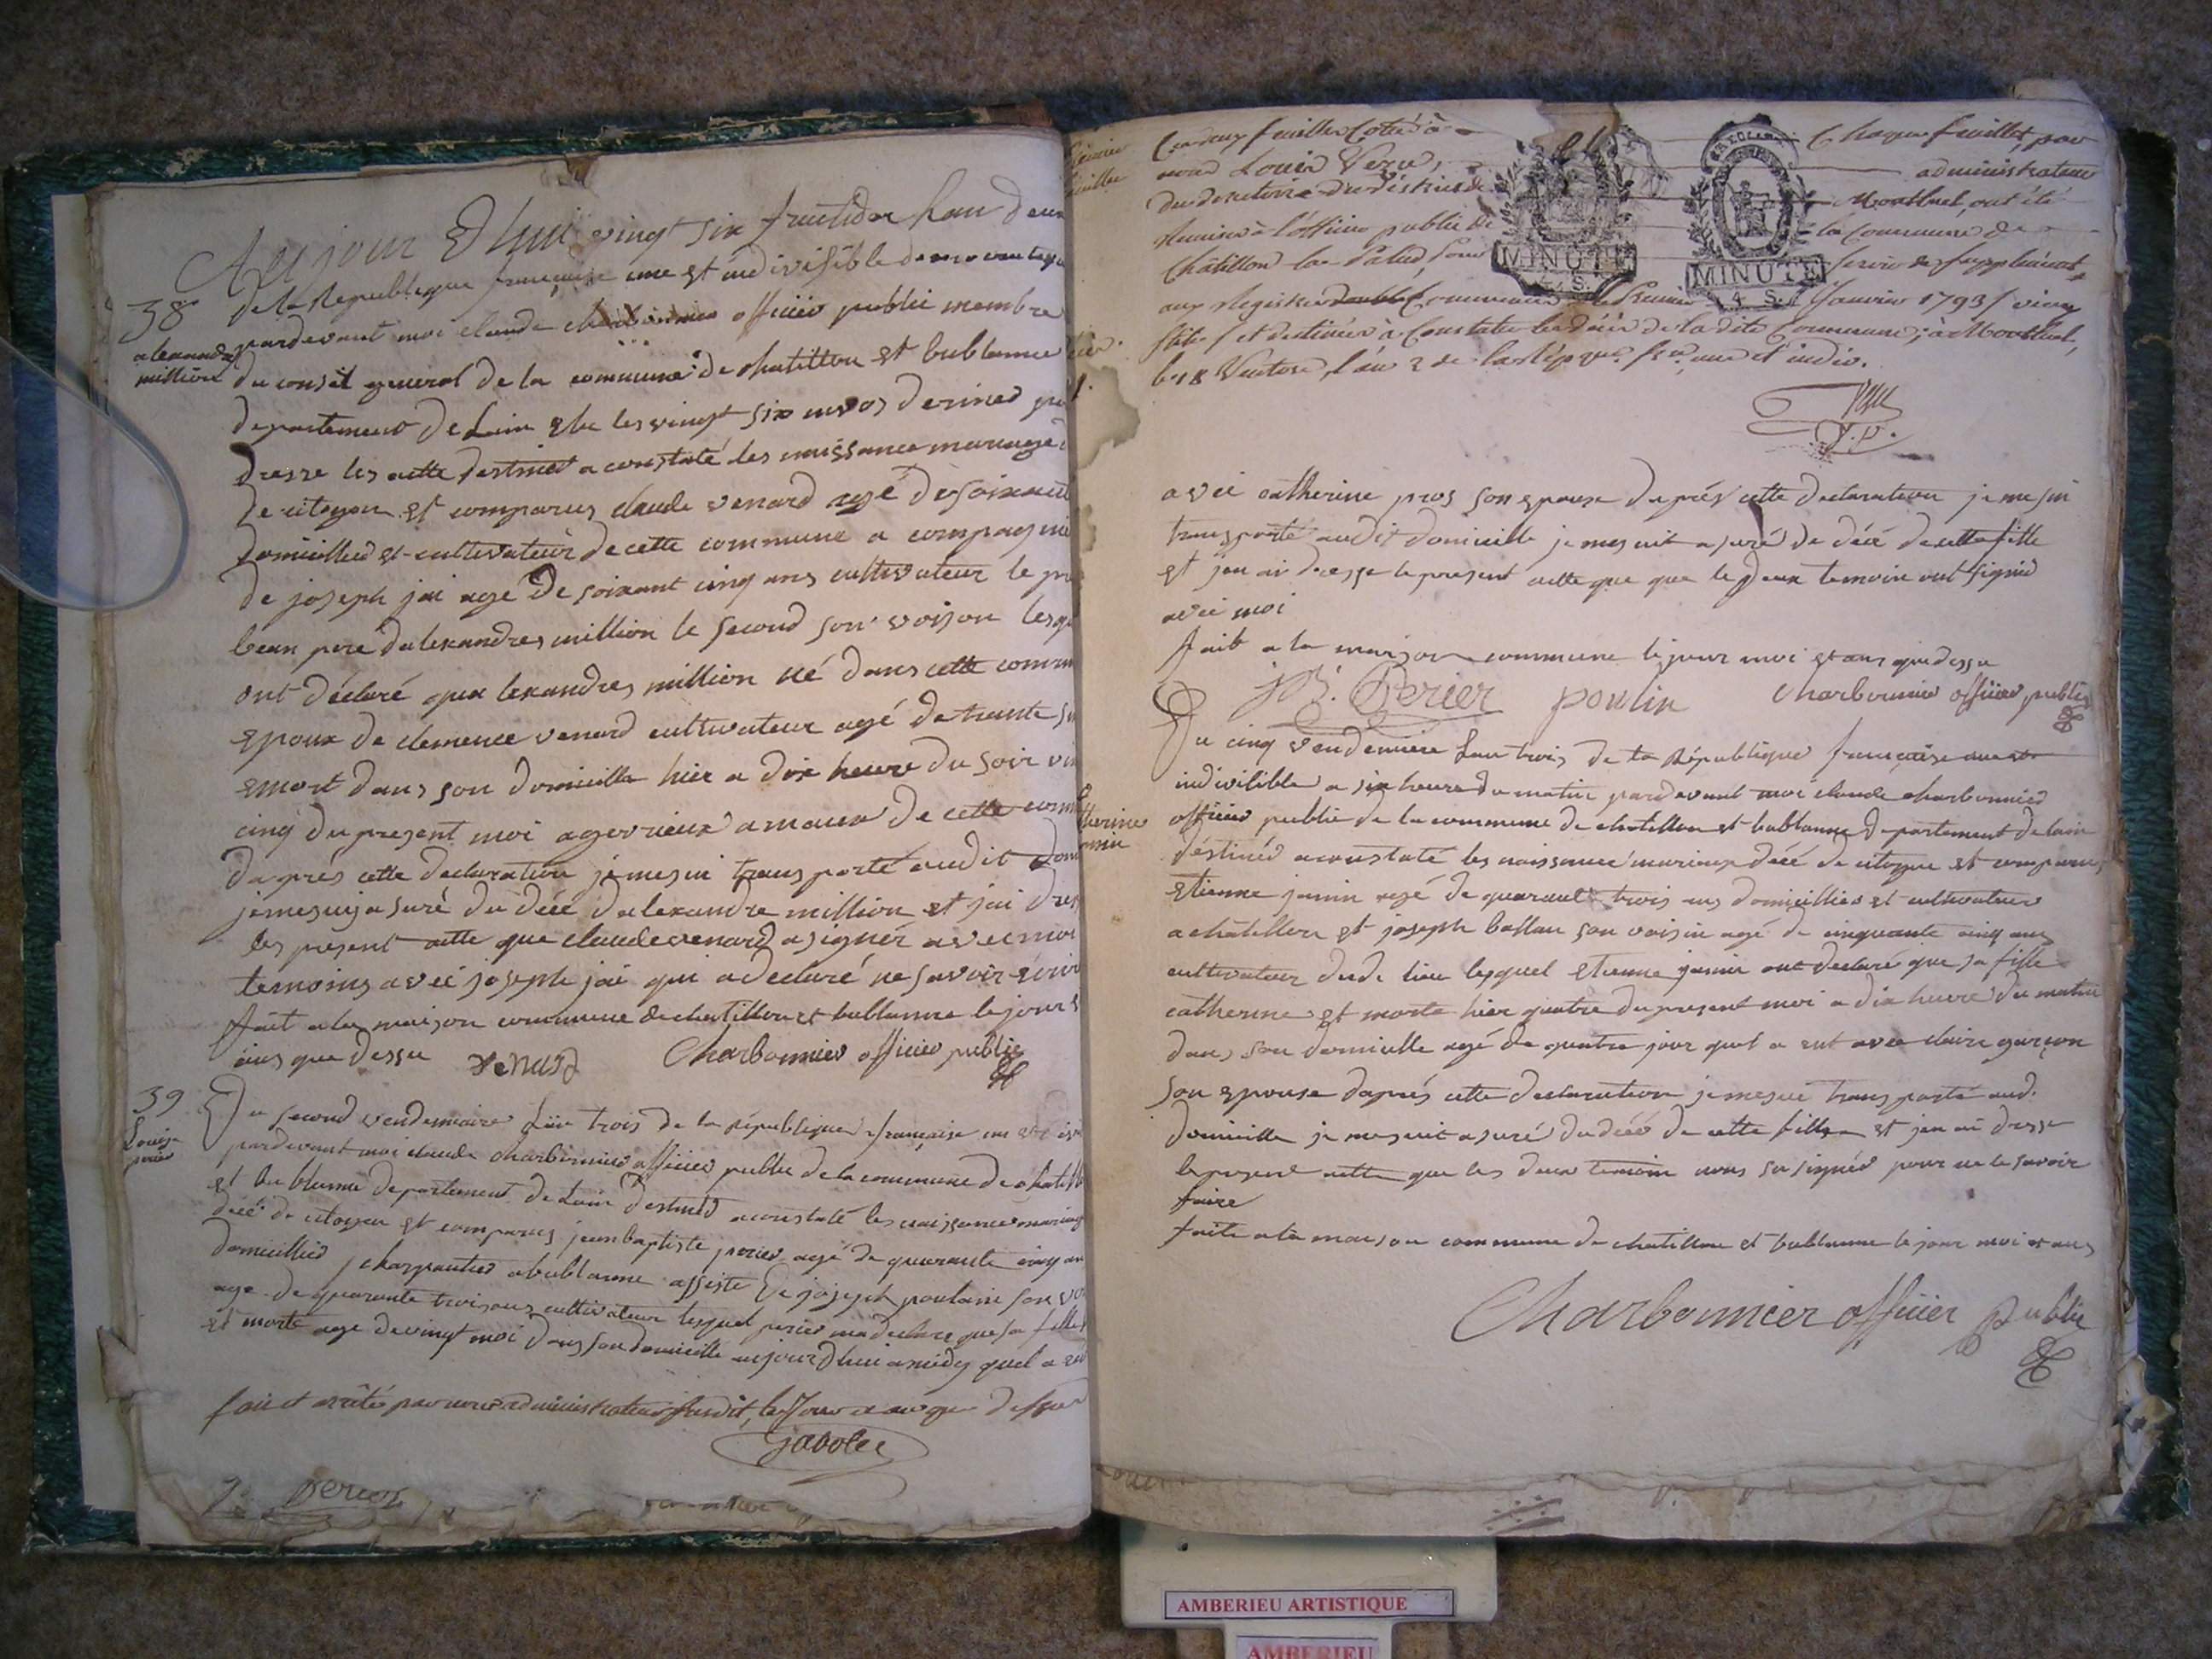 Aujour Dhui vingt six fructidor Lan deux
de la Republique française une et indivisible
38 pardevant moi claude charbonnier officier public membre
alexandre million
du conseil general de la commune de chatillon et bublanne
departement de Lain
dresse les actte destinet a constaté les naissance mariage
de citoyen et comparus claude venard agé de soixant
domicillied et cultivateur de cette commune a compagnié
de joseph jai age de soixant cinq ans cultivateur le
beau pere dalexandres million le second son voison
ont déclaré quea lexandres million né dans cette
epoux de clemence venard cultivateur agé de trente
emort dans son domicille hier a dix heure du soir
cinq du present moi
daprés cette declaration jemesui transporté audit
jemesuijasuré du décé dalexandre million et jai
les present actte que claudevenard a signér avec moi
temoins avec joseph jai qui a declaré ne savoir
fait a la maison commune de chatillon et bublanne le jour
ans que dessu
venard Charbonnier officier public
39
Louise perier
Du second vendemiaire Lan trois de la république française
pardevant moi claude charbonnier officier public de la commune de
et bublanne departement de Lain destined a constaté les naissance
décé de citoyen et comparus jeanbaptiste perier agé de quarante cinq
domicillied charpantier a bublanne assiste de joseph poulain son
age de quarante trois ans cultivateur lesquel perier ma declare que sa fille
et morte age de vingt moi dans son domicille aujourdhui a midy quel a
fait et arrêté par nous administrateur susdit, les Jour et an que dessus
Les deux feuillets Cotés à Chaque feuillet, par
nous Louis administrateur
du directoire du District de Montluel, ont été
Remis à l'officier public de la Commune de
Châtillon la Palud, pour servir de suppléments
aux Registres doubles Commencés le Premier Janvier 1793
et destinés à Constater les décès de la dite Commune; à Montluel,
le 18 Ventose, l'an 2 de la Rép. une et indiv.
MINUTE
4 S.
MINUTE
4 S.
avec catherine pros son epouse daprés cette declaration je me sui
transporté audit domicille je me suit asuré de décé de cette fille
et jen ai dresse le present actte que que le deux temoin ont signé
avec moi
fait a la maison commune le jour moi et ans que dessu
J.B. Perier poulin Charbonnier officier public
Du cinq vendemiere Lan trois de la République française une et
indivisible a six heure du matin pardevant moi claude charbonnier
officier public de la commune de chatillon et bublanne departement de lain
déstinéd a constaté les naissance mariage décé de citoyen et comparus
Etienne janin agé de quarante trois ans domicillied et cultivateur
a châtillon et joseph ballan son voisin agé de cinquante cinq ans
cultivateur dudi lieu lesquel etienne janin ont declaré que sa fille
catherine et morte hier quatre du present moi a dix heure du matin
dans son domicille agé de quatre jour quel a eut avec claire garçon
son epouse daprés cette declaration jemesui transporté aud.
domicille je me suit asuré du décé de cette fille et jen ai dresse
le present actte que les deux temoin
faire
faite a la maison commune de chatillon et bublanne le jour moi et ans
Charbonnier officier public
AMBERIEU ARTISTIQUE
AMBERIEU